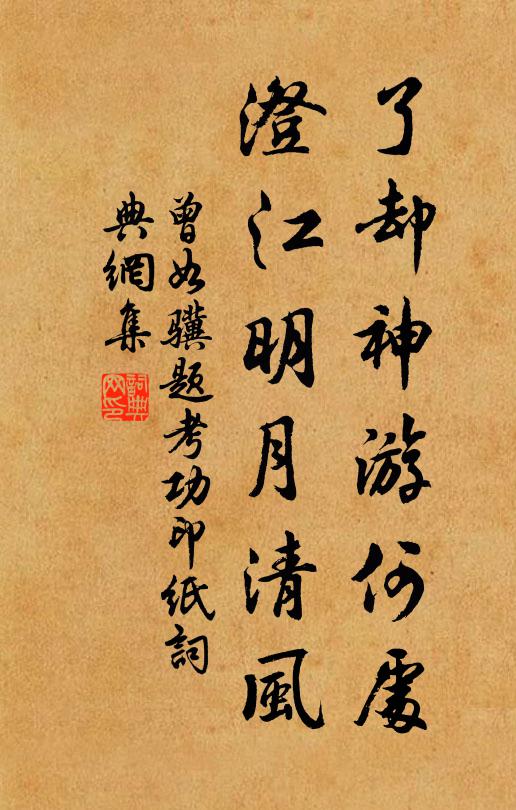 了却神游何處
澄江明月清風
曾如驥題考功印紙詞
典網集
詞典網印